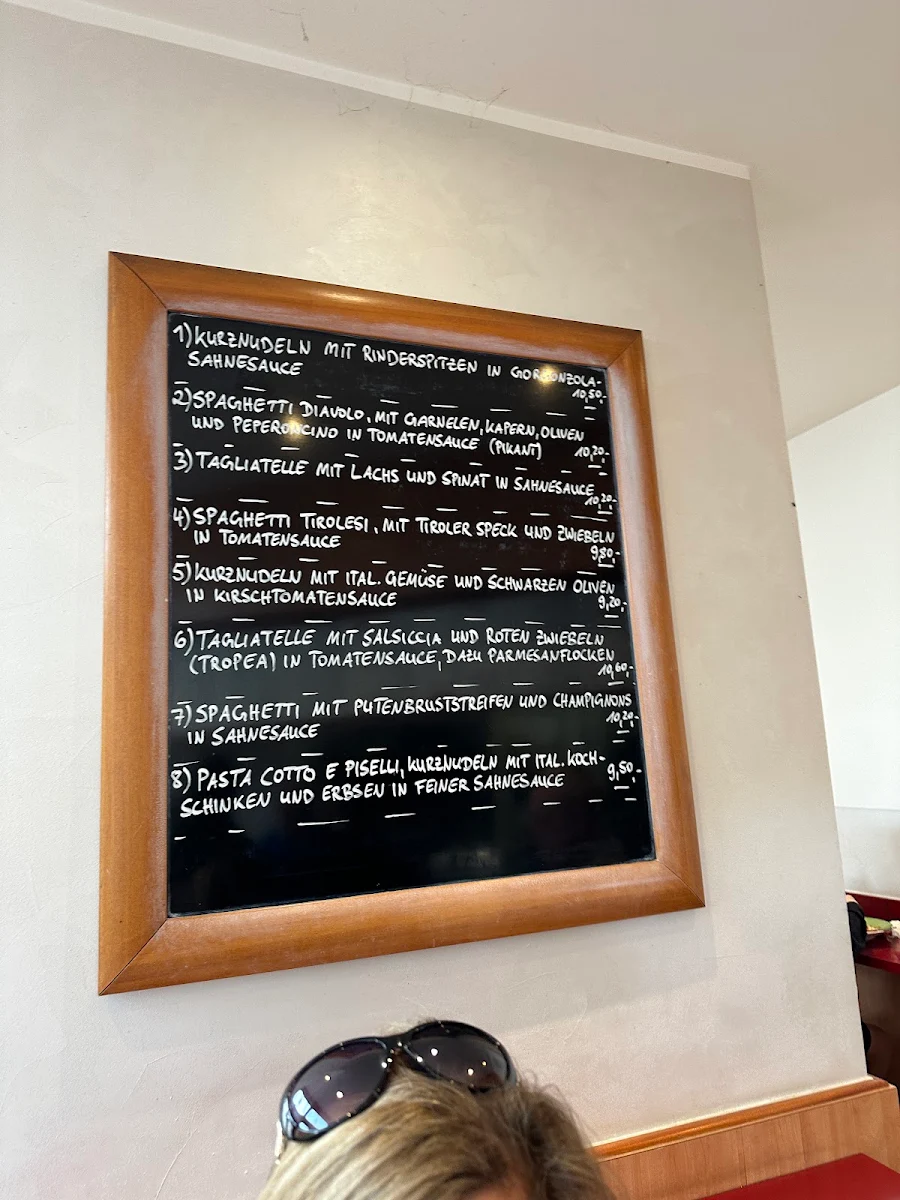 1) KURZNUDELN MIT RINDERSPITZEN IN GORGONZOLA-
SAHNESAUCE 10,50.-
2) SPAGHETTI DIAVOLO, MIT GARNELEN, KAPERN, OLIVEN
UND PEPERONCINO IN TOMATENSAUCE (PIKANT) 10,20.-
3) TAGLIATELLE MIT LACHS UND SPINAT IN SAHNESAUCE
10,20.-
4) SPAGHETTI TIROLESI, MIT TIROLER SPECK UND ZWIEBELN
IN TOMATENSAUCE 9,80.-
5) KURZNUDELN MIT ITAL. GEMÜSE UND SCHWARZEN OLIVEN
IN KIRSCHTOMATENSAUCE 9,20.-
6) TAGLIATELLE MIT SALSICCIA UND ROTEN ZWIEBELN
(TROPEA) IN TOMATENSAUCE, DAZU PARMESANFLOCKEN
10,60.-
7) SPAGHETTI MIT PUTENBRUSTSTREIFEN UND CHAMPIGNONS
IN SAHNESAUCE 10,20.-
8) PASTA COTTO E PISELLI, KURZNUDELN MIT ITAL. KOCH- 9,50.-
SCHINKEN UND ERBSEN IN FEINER SAHNESAUCE